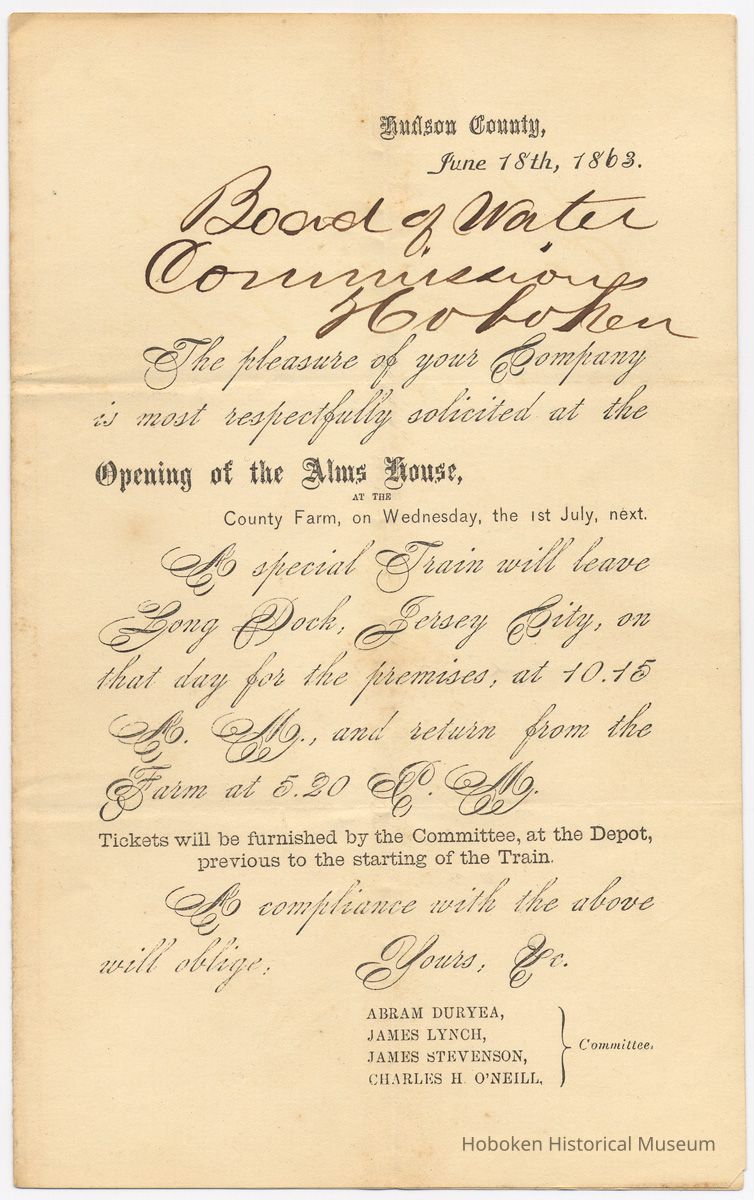 Hudson County,
June 18th, 1863.
Board of Water
Commissions
Hoboken
The pleasure of your Company
is most respectfully solicited at the
Opening of the Alms House,
AT THE
County Farm, on Wednesday, the 1st July, next.
A special Train will leave
Long Dock, Jersey City, on
that day for the premises, at 10.15
A. M., and return from the
Farm at 5.20 P. M.
Tickets will be furnished by the Committee, at the Depot,
previous to the starting of the Train.
A compliance with the above
will oblige, Yours, &c.
ABRAM DURYEA,
JAMES LYNCH,
JAMES STEVENSON,
CHARLES H. O'NEILL,
Committee.
Hoboken Historical Museum